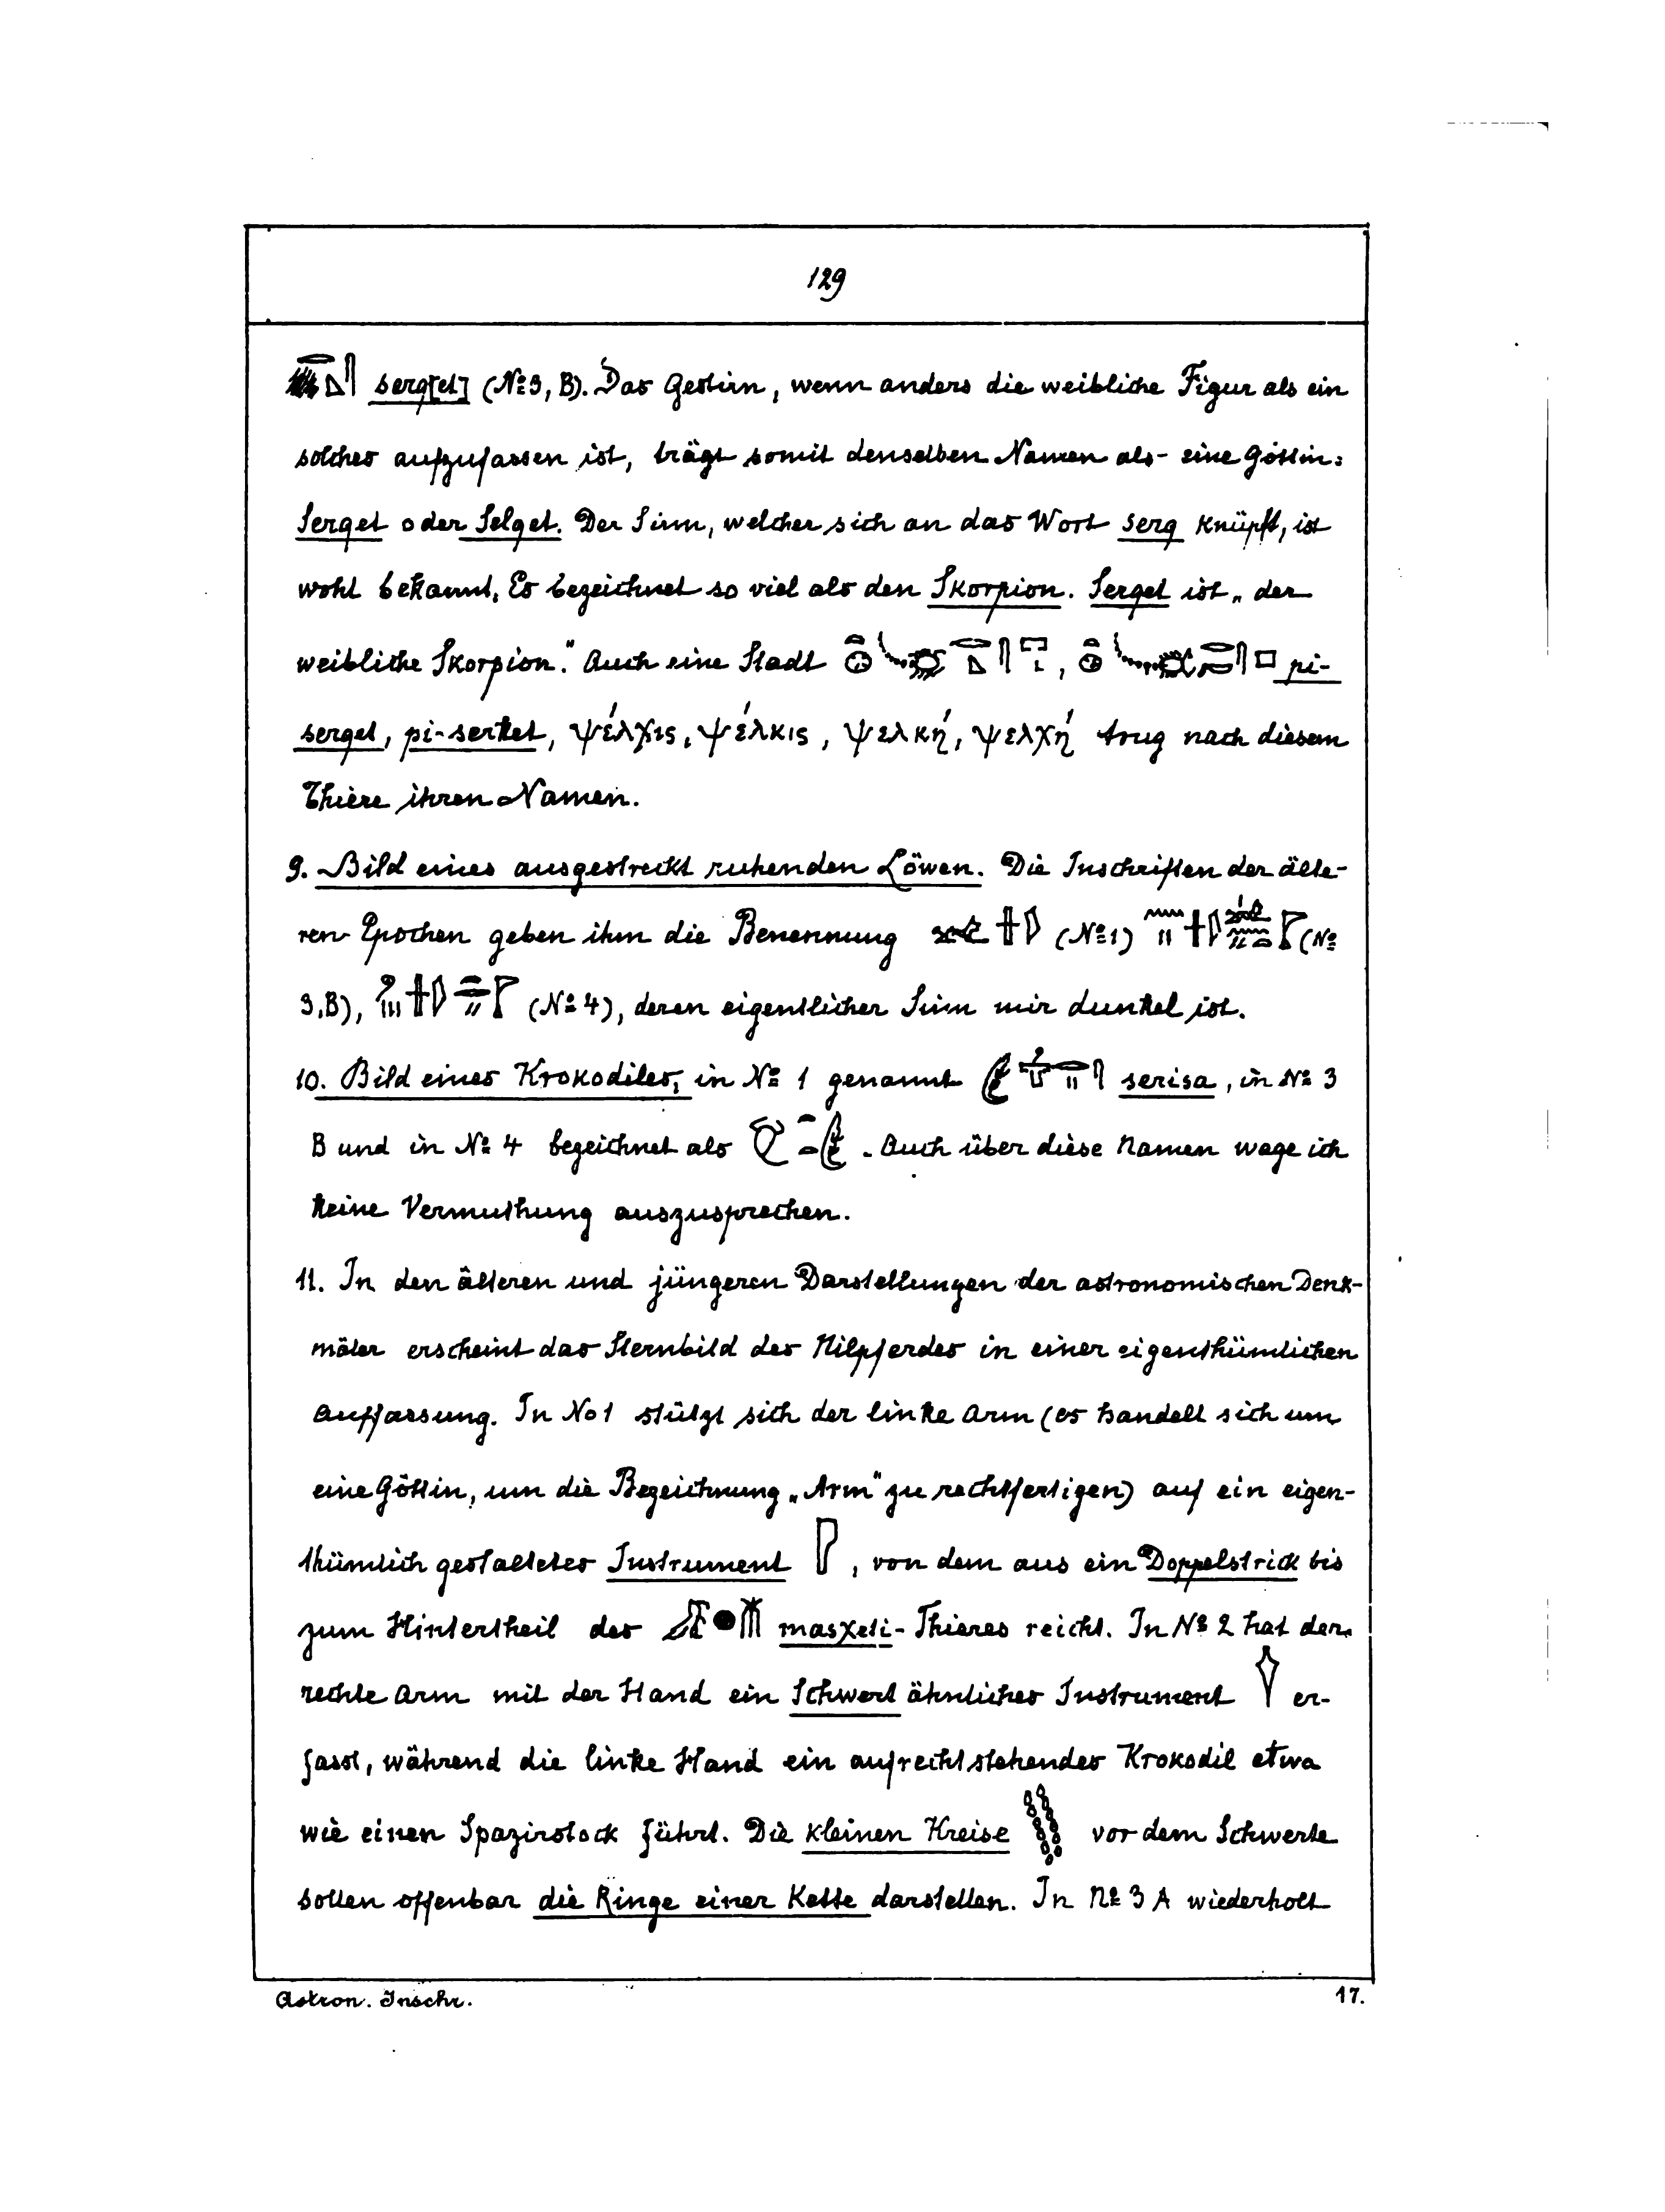 129
serq[et] (№ 3, B). Das Gestirn, wenn anders die weibliche Figur als ein
solches aufzufassen ist, trägt somit denselben Namen als eine Göttin:
Serqet oder Selqet. Der Sinn, welcher sich an das Wort serq knüpft, ist
wohl bekannt. Es bezeichnet so viel als den Skorpion. Serqet ist „der
weibliche Skorpion." Auch eine Stadt , pi-
serqet, pi-serket, ψέλχις, ψέλκις, ψελκή, ψελχή trug nach diesem
Thiere ihren Namen.
9. Bild eines ausgestreckt ruhenden Löwen. Die Inschriften der älte-
ren Epochen geben ihm die Benennung (№ 1) (№
3, B), (№ 4), deren eigentlicher Sinn mir dunkel ist.
10. Bild eines Krokodiles, in № 1 genannt serisa, in № 3
B und in № 4 bezeichnet als . Auch über diese Namen wage ich
keine Vermuthung auszusprechen.
11. In den älteren und jüngeren Darstellungen der astronomischen Denk-
mäler erscheint das Sternbild des Nilpferdes in einer eigenthümlichen
Auffassung. In No 1 stützt sich der linke Arm (es handelt sich um
eine Göttin, um die Bezeichnung „Arm" zu rechtfertigen) auf ein eigen-
thümlich gestaltetes Instrument , von dem aus ein Doppelstrick bis
zum Hintertheil des masχeti-Thieres reicht. In № 2 hat der
rechte Arm mit der Hand ein Schwert ähnliches Instrument er-
fasst, während die linke Hand ein aufrecht stehendes Krokodil etwa
wie einen Spazirstock führt. Die kleinen Kreise vor dem Schwerte
sollen offenbar die Ringe einer Kette darstellen. In № 3 A wiederholt
Astron. Inschr. 17.